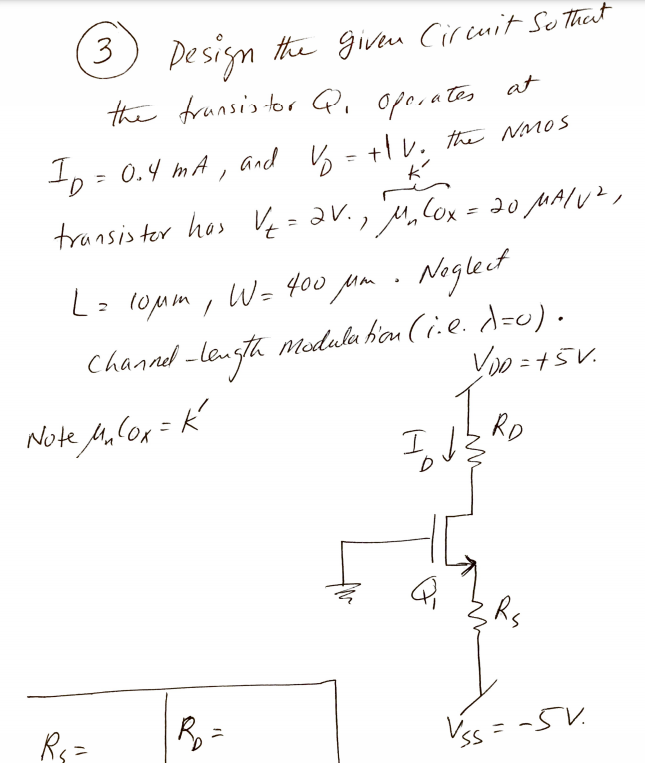 3 Design the given Circuit So that
the transistor Q₁ operates at
I_D = 0.4 mA, and V_D = +1 V. the NMOS
K'
transistor has V_t = 2V., μ_n Cox = 20 μA/V²,
L = 10μm, W = 400 μm. Neglect
Channel-length modulation (i.e. λ=0).
V_DD = +5V.
Note μ_n Cox = K'
R_D
I_D ↓
Q₁
R_S
V_SS = -5V.
R_S =
R_D =